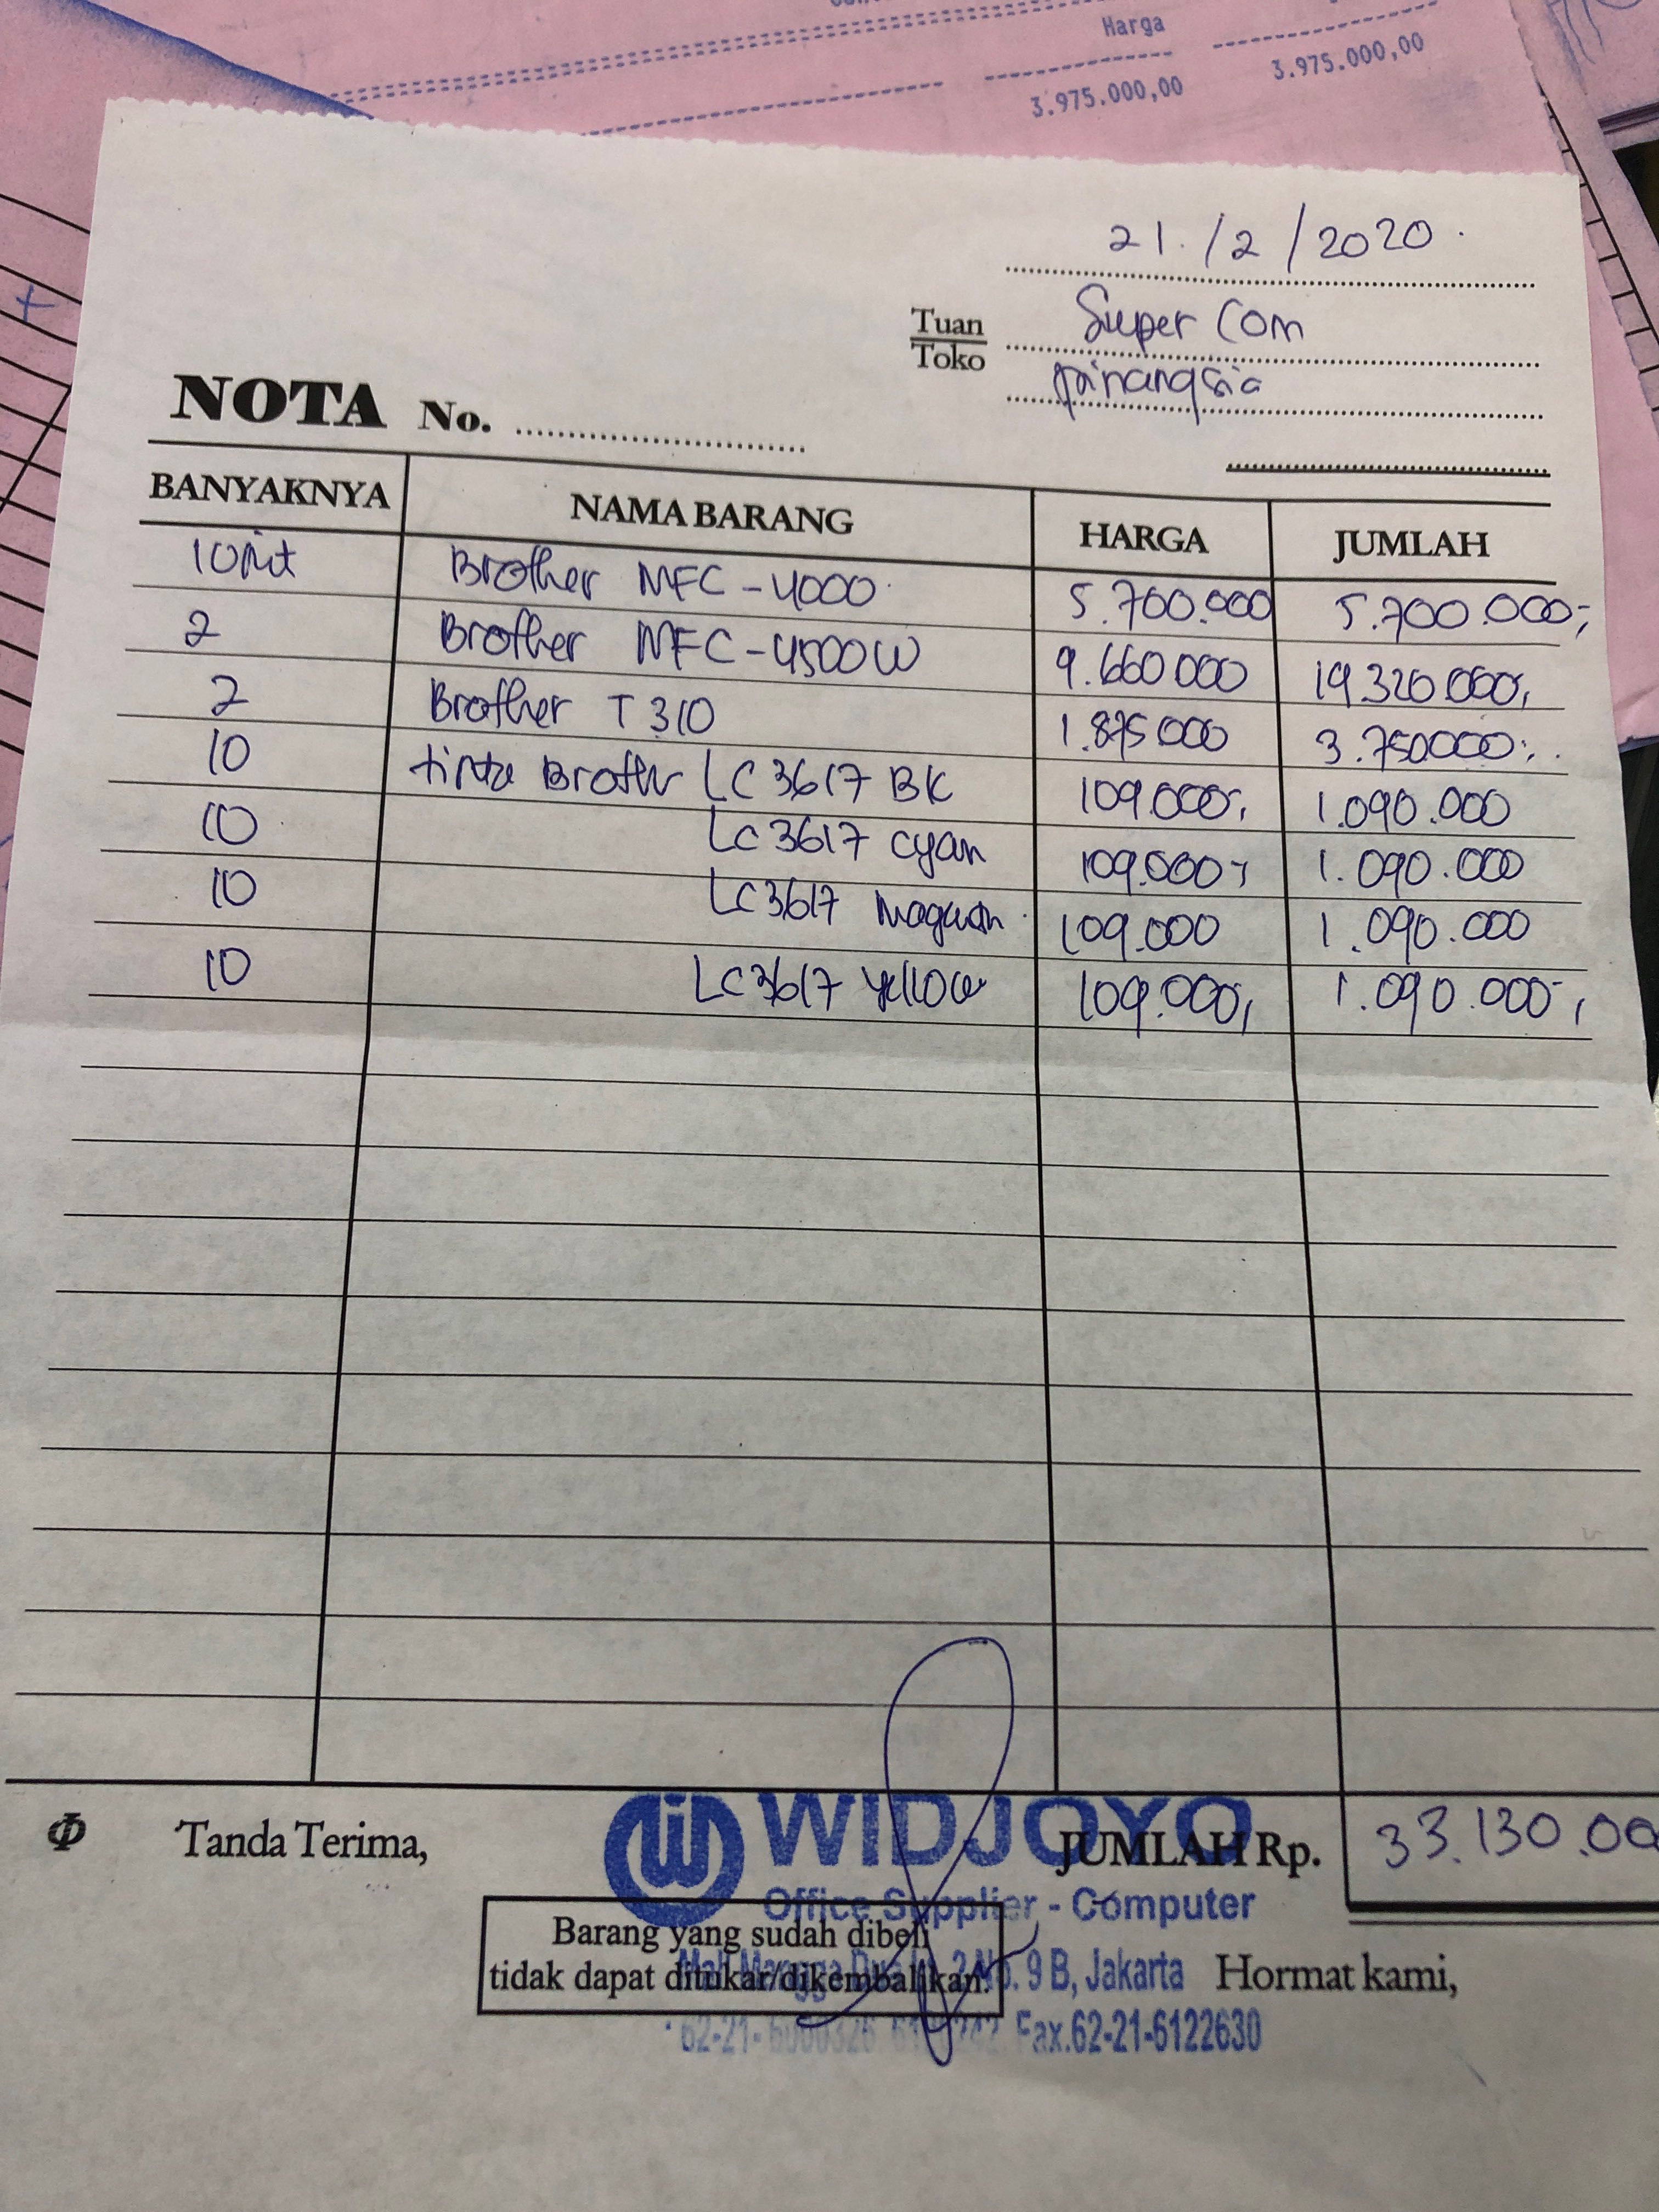 Harga
3.975.000,00 3.975.000,00
21./2/2020.
Tuan
Toko
Super Com
pinangsia
NOTA No.
BANYAKNYA NAMA BARANG HARGA JUMLAH
1 Unit Brother MFC-4000 5.700.000 5.700.000,-
2 Brother MFC-4500W 9.660 000 19 320 000,
2 Brother T310 1.875 000 3.750000,-
10 tinta Brother LC 3617 BK 109.000,- 1.090.000
10 LC 3617 cyan 109.000,- 1.090.000
10 LC3617 109.000 1.090.000
10 LC3617 yellow 109.000, 1.090.000-,
Tanda Terima,
WIDJOYO
JUMLAH Rp. 33.130.00
Office Supplier - Computer
Barang yang sudah dibeli
tidak dapat ditukar/dikembalikan.
Mall Mangga Dua No. 9 B, Jakarta
Hormat kami,
62-21- Fax.62-21-6122630